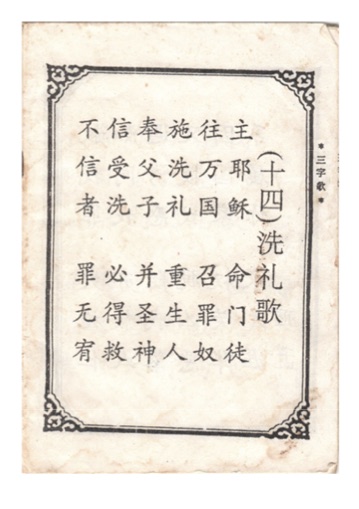 *三字歌*
(十四)洗礼歌
主耶稣 命门徒
往万国 召罪奴
施洗礼 重生人
奉父子 并圣神
信受洗 必得救
不信者 罪无宥